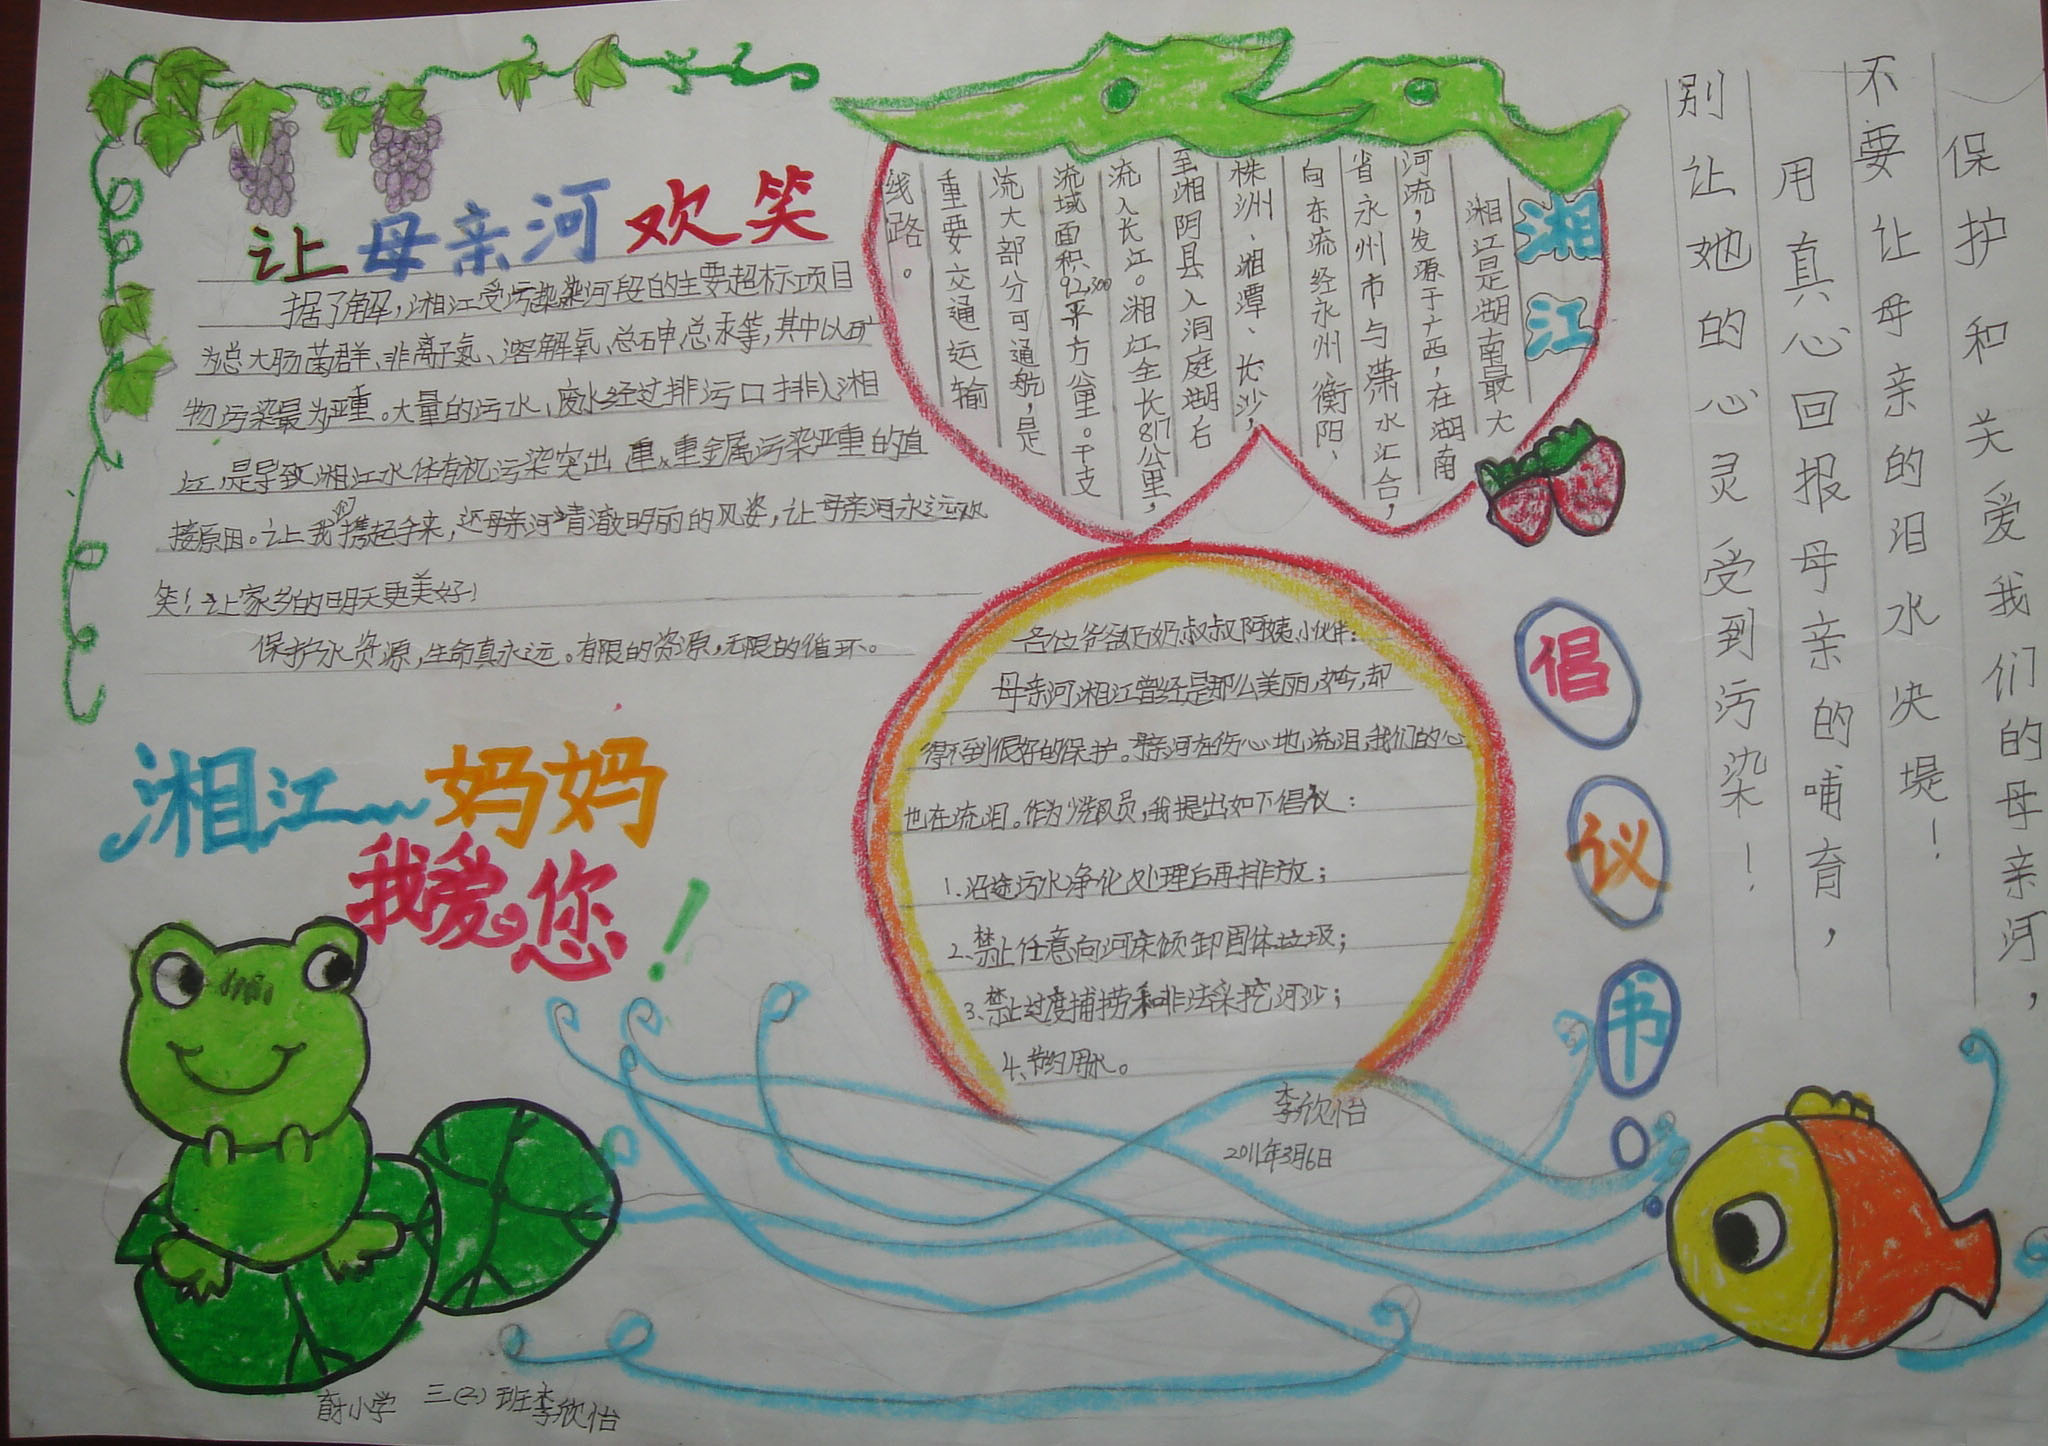 让母亲河欢笑
据了解，湘江受污染染河段的主要超标项目
为总大肠菌群、非离子氨、溶解氧、总砷总汞等，其中以矿
物污染最为严重。大量的污水、废水经过排污口排入湘
江，是导致湘江水体有机污染突出 重金属污染严重的直
接原因。让我们携起手来，还母亲河清澈明丽的风姿，让母亲河永远欢
笑！让家乡的明天更美好！
保护水资源，生命真永远。有限的资源，无限的循环。
湘江
湘江是湖南最大
河流，发源于广西，在湖南
省永州市与潇水汇合，
向东流经永州、衡阳、
株洲、湘潭、长沙，
至湘阴县入洞庭湖后
流入长江。湘江全长817公里，
流域面积92,300平方公里。干支
流大部分可通航，是
重要交通运输
线路。
保护和关爱我们的母亲河，
不要让母亲的泪水决堤！
用真心回报母亲的哺育，
别让她的心灵受到污染！
倡议书
各位爷爷奶奶叔叔阿姨小伙伴：
母亲河湘江曾经是那么美丽，如今，却
得不到很好的保护。母亲河在伤心地流泪，我们的心
也在流泪。作为少先队员，我提出如下倡议：
1.沿途污水净化处理后再排放；
2、禁止任意向河床倾卸固体垃圾；
3、禁止过度捕捞和非法采挖河沙；
4、节约用水。
李欣怡
2011年3月6日
湘江妈妈
我爱您！
育才小学 三(2)班李欣怡